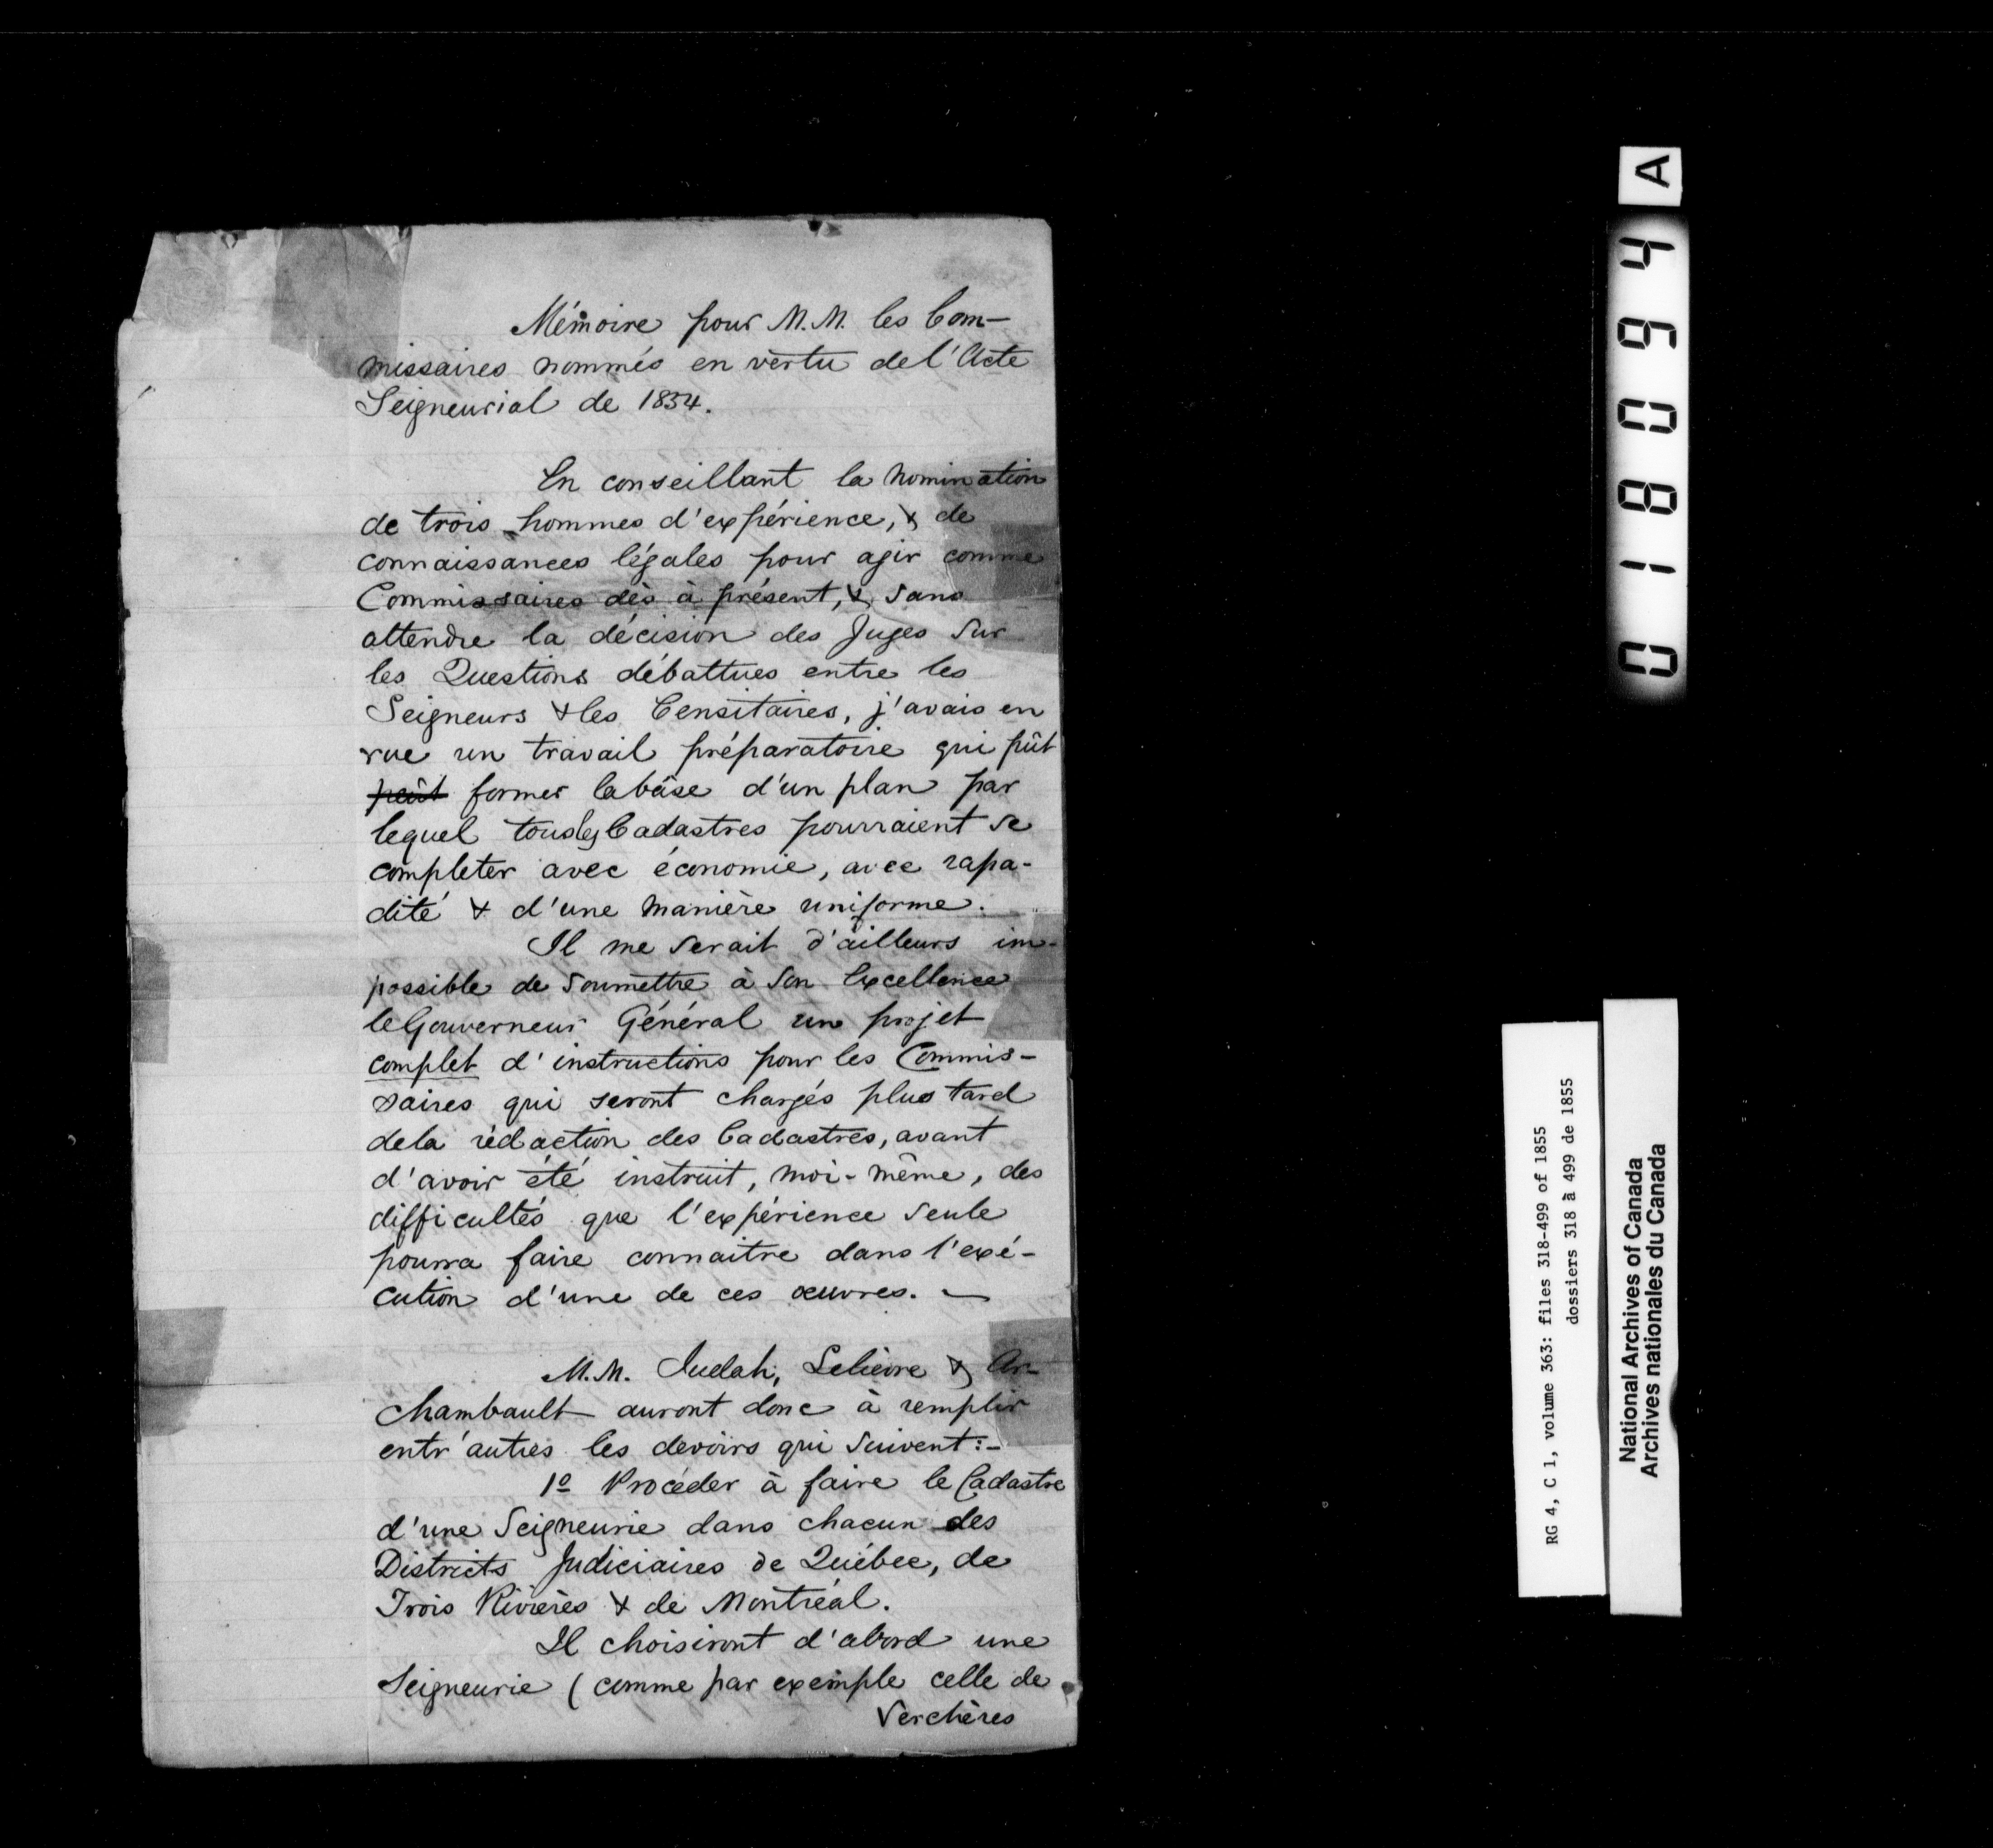 Mémoire pour M.M. les Com-
missaires nommés en vertu de l'Acte
Seigneurial de 1854.
En conseillant la nomination
de trois hommes d'expérience, & de
connaissances légales pour agir comme
Commissaires dès à présent, & sans
attendre la décision des Juges sur
les Questions débattues entre les
Seigneurs & les Censitaires, j'avais en
vue un travail préparatoire qui pût
peût former la bâse d'un plan par
lequel tous les Cadastres pourraient se
completer avec économie, avec rapa-
dité & d'une manière uniforme.
Il me serait d'ailleurs im-
possible de soumettre à Son Excellence
le Gouverneur Général un projet
complet d'instructions pour les Commis-
saires qui seront chargés plus tard
de la rédaction des Cadastres, avant
d'avoir été instruit, moi-même, des
difficultés que l'expérience seule
pourra faire connaitre dans l'exé-
cution d'une de ces œuvres. —
M.M. Judah, Lelièvre & Ar-
chambault auront donc à remplir
entr'autres les devoirs qui suivent:-
1º Procéder à faire le Cadastre
d'une Seigneurie dans chacun des
Districts Judiciaires de Québec, de
Trois Rivières & de Montréal.
Il choisiront d'abord une
Seigneurie (comme par exemple celle de
Verchères
018094 A
RG 4, C 1, volume 363: files 318-499 of 1855
dossiers 318 à 499 de 1855
National Archives of Canada
Archives nationales du Canada